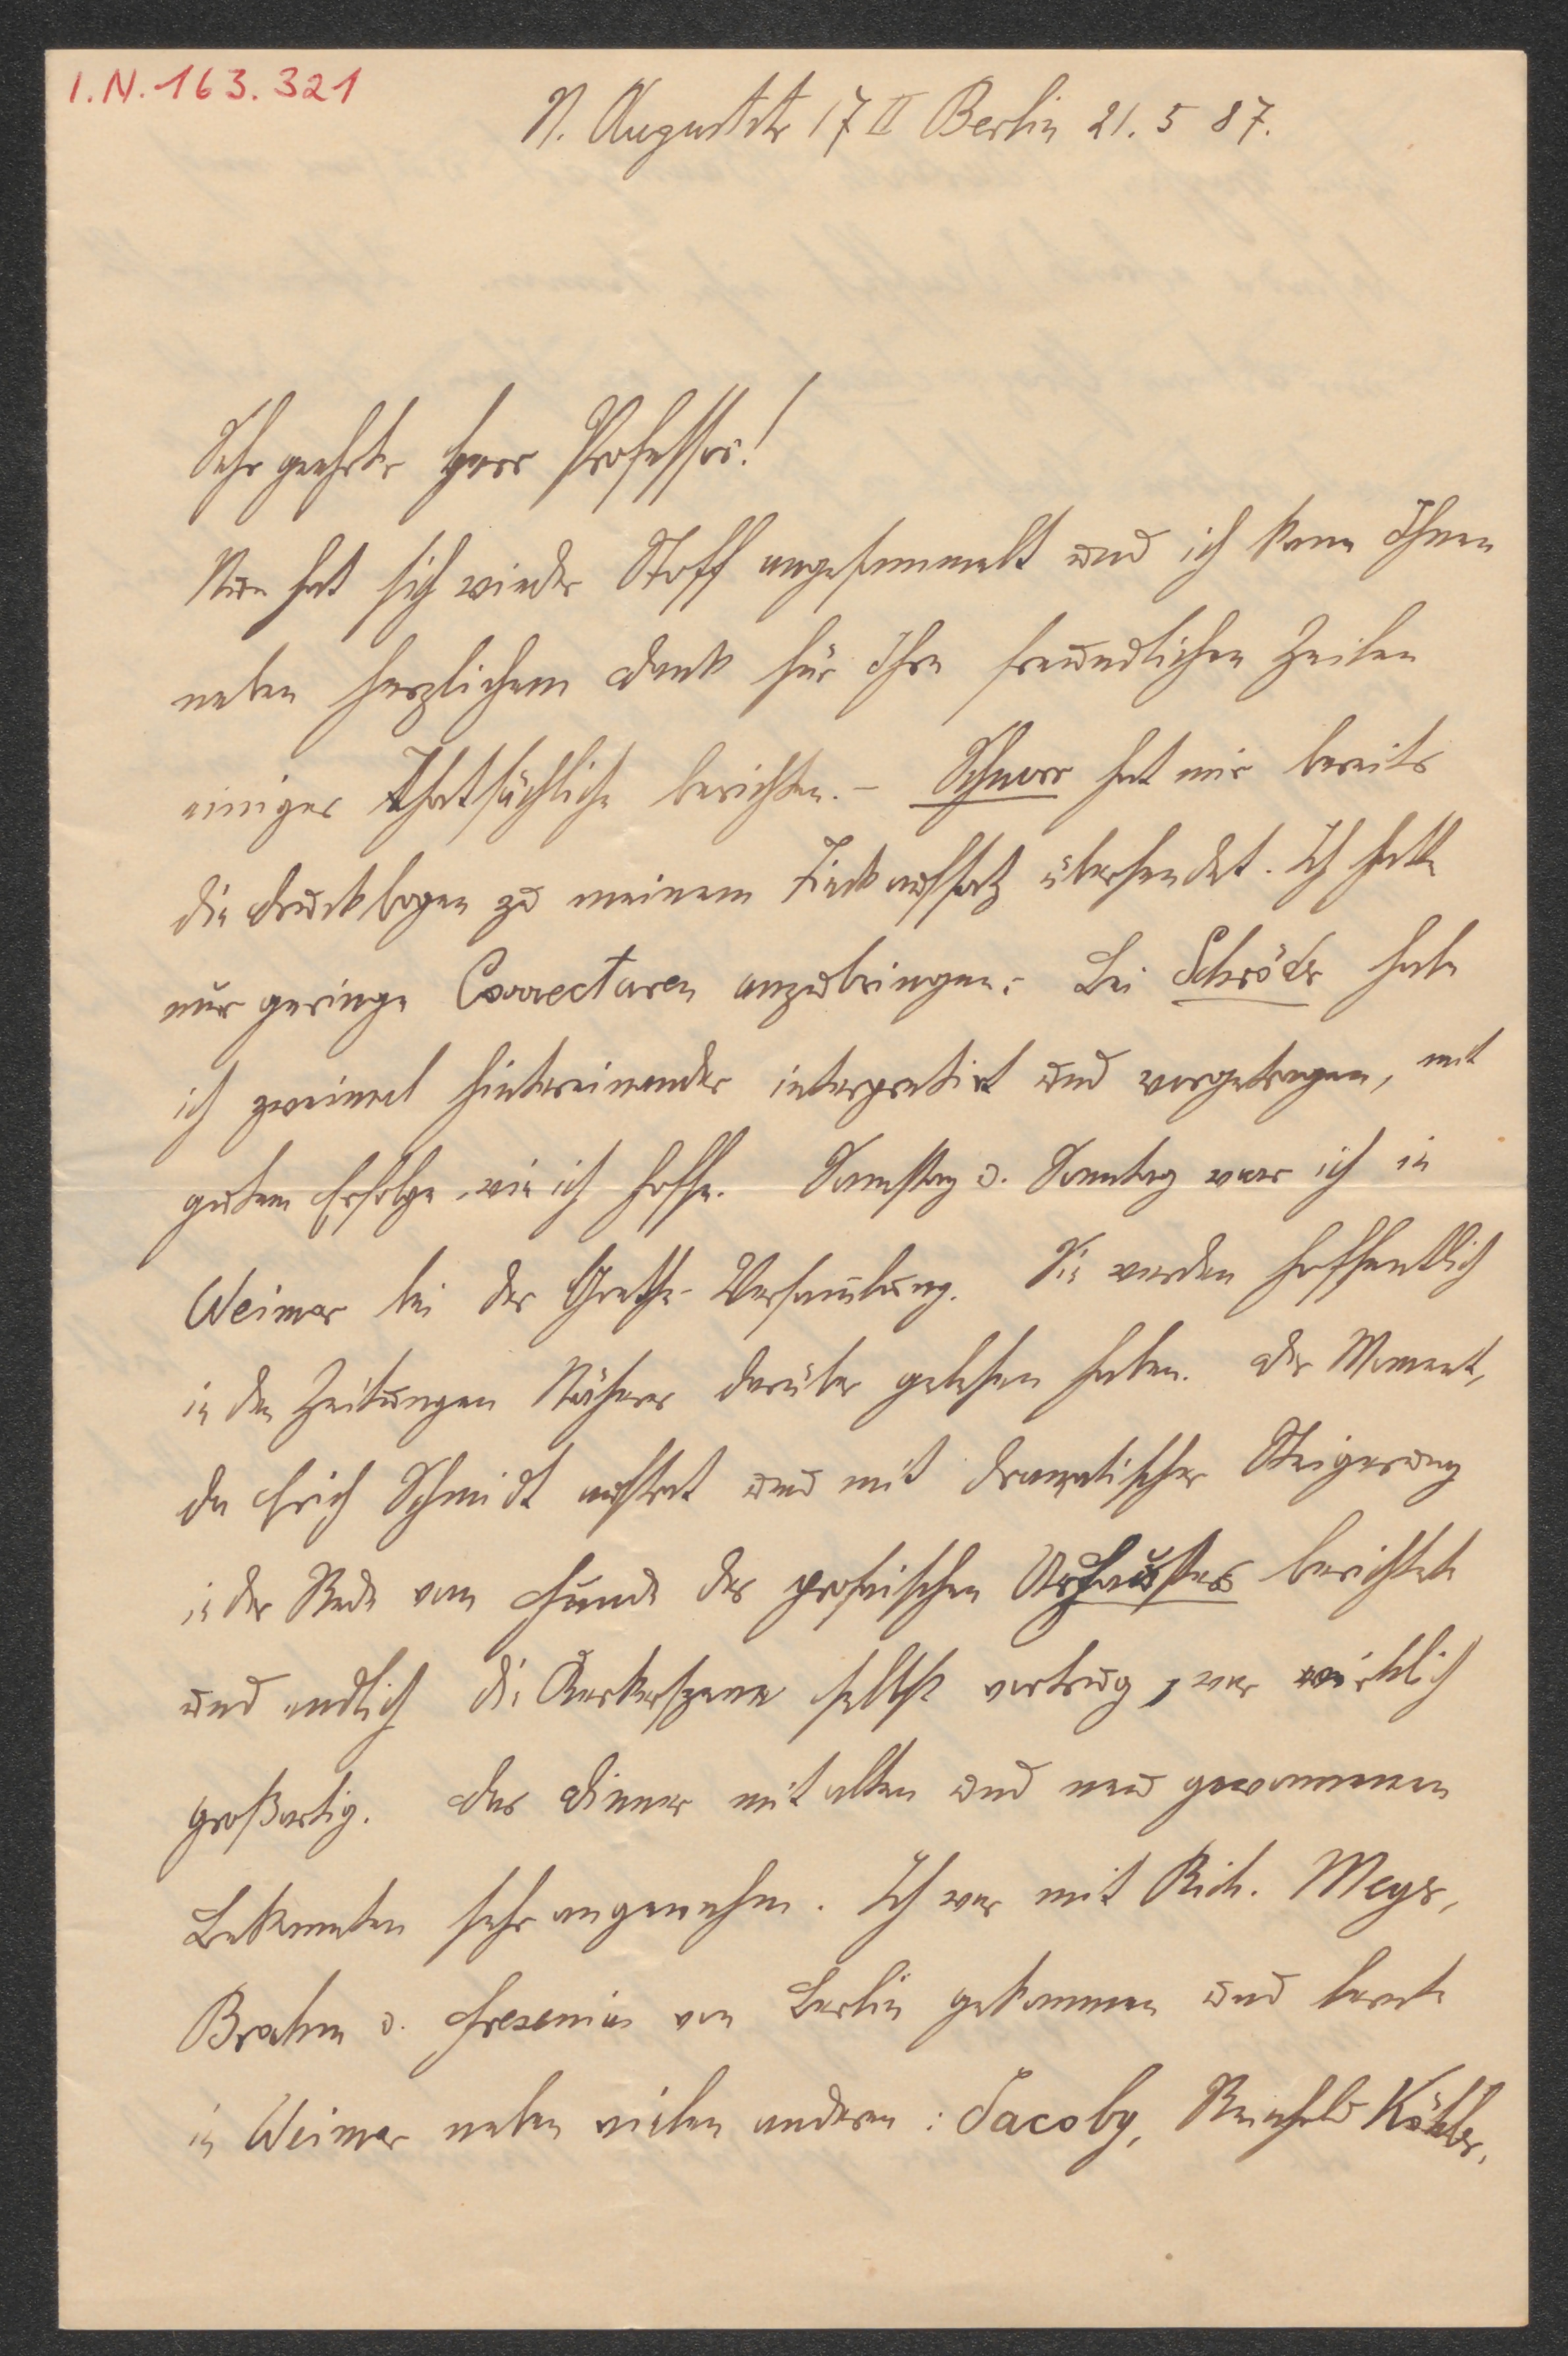 I.N. 163.321
N. Auguststr 17 II Berlin 21. 5 87.
Sehr geehrter Herr Professor!
Nun hat sich wieder Stoff angesammelt und ich kann Ihnen
neben herzlichem Dank für Ihre freundlichen Zeilen
einiges Thatsächliche berichten. – Schnorr hat mir bereits
die Druckbogen zu meinem Tieckaufsatz übersendet. Ich hatte
nur geringe Correcturen anzubringen. Bei Schröder habe
ich zweimal hintereinander interpretirt und vorgetragen, mit
gutem Erfolge, wie ich hoffe. Samstag u. Sonntag war ich in
Weimar bei der Goethe-Versam̄lung. Sie werden hoffentlich
in den Zeitungen Näheres darüber gelesen haben. Der Moment,
da Erich Schmidt auftrat und mit dramatischer Steigerung
in der Rede vom Funde des prosaischen Urfaustes berichtete
und endlich die Kerkerszene selbst vortrug, war wirklich
großartig. Das Dinner mit alten und neu gewonnenen
Bekannten sehr angenehm. Ich war mit Rich. Meyer,
Brahm u. Fresenius von Berlin gekommen und lernte
in Weimar neben vielen anderen: Jacoby, Reinhold Köhler,